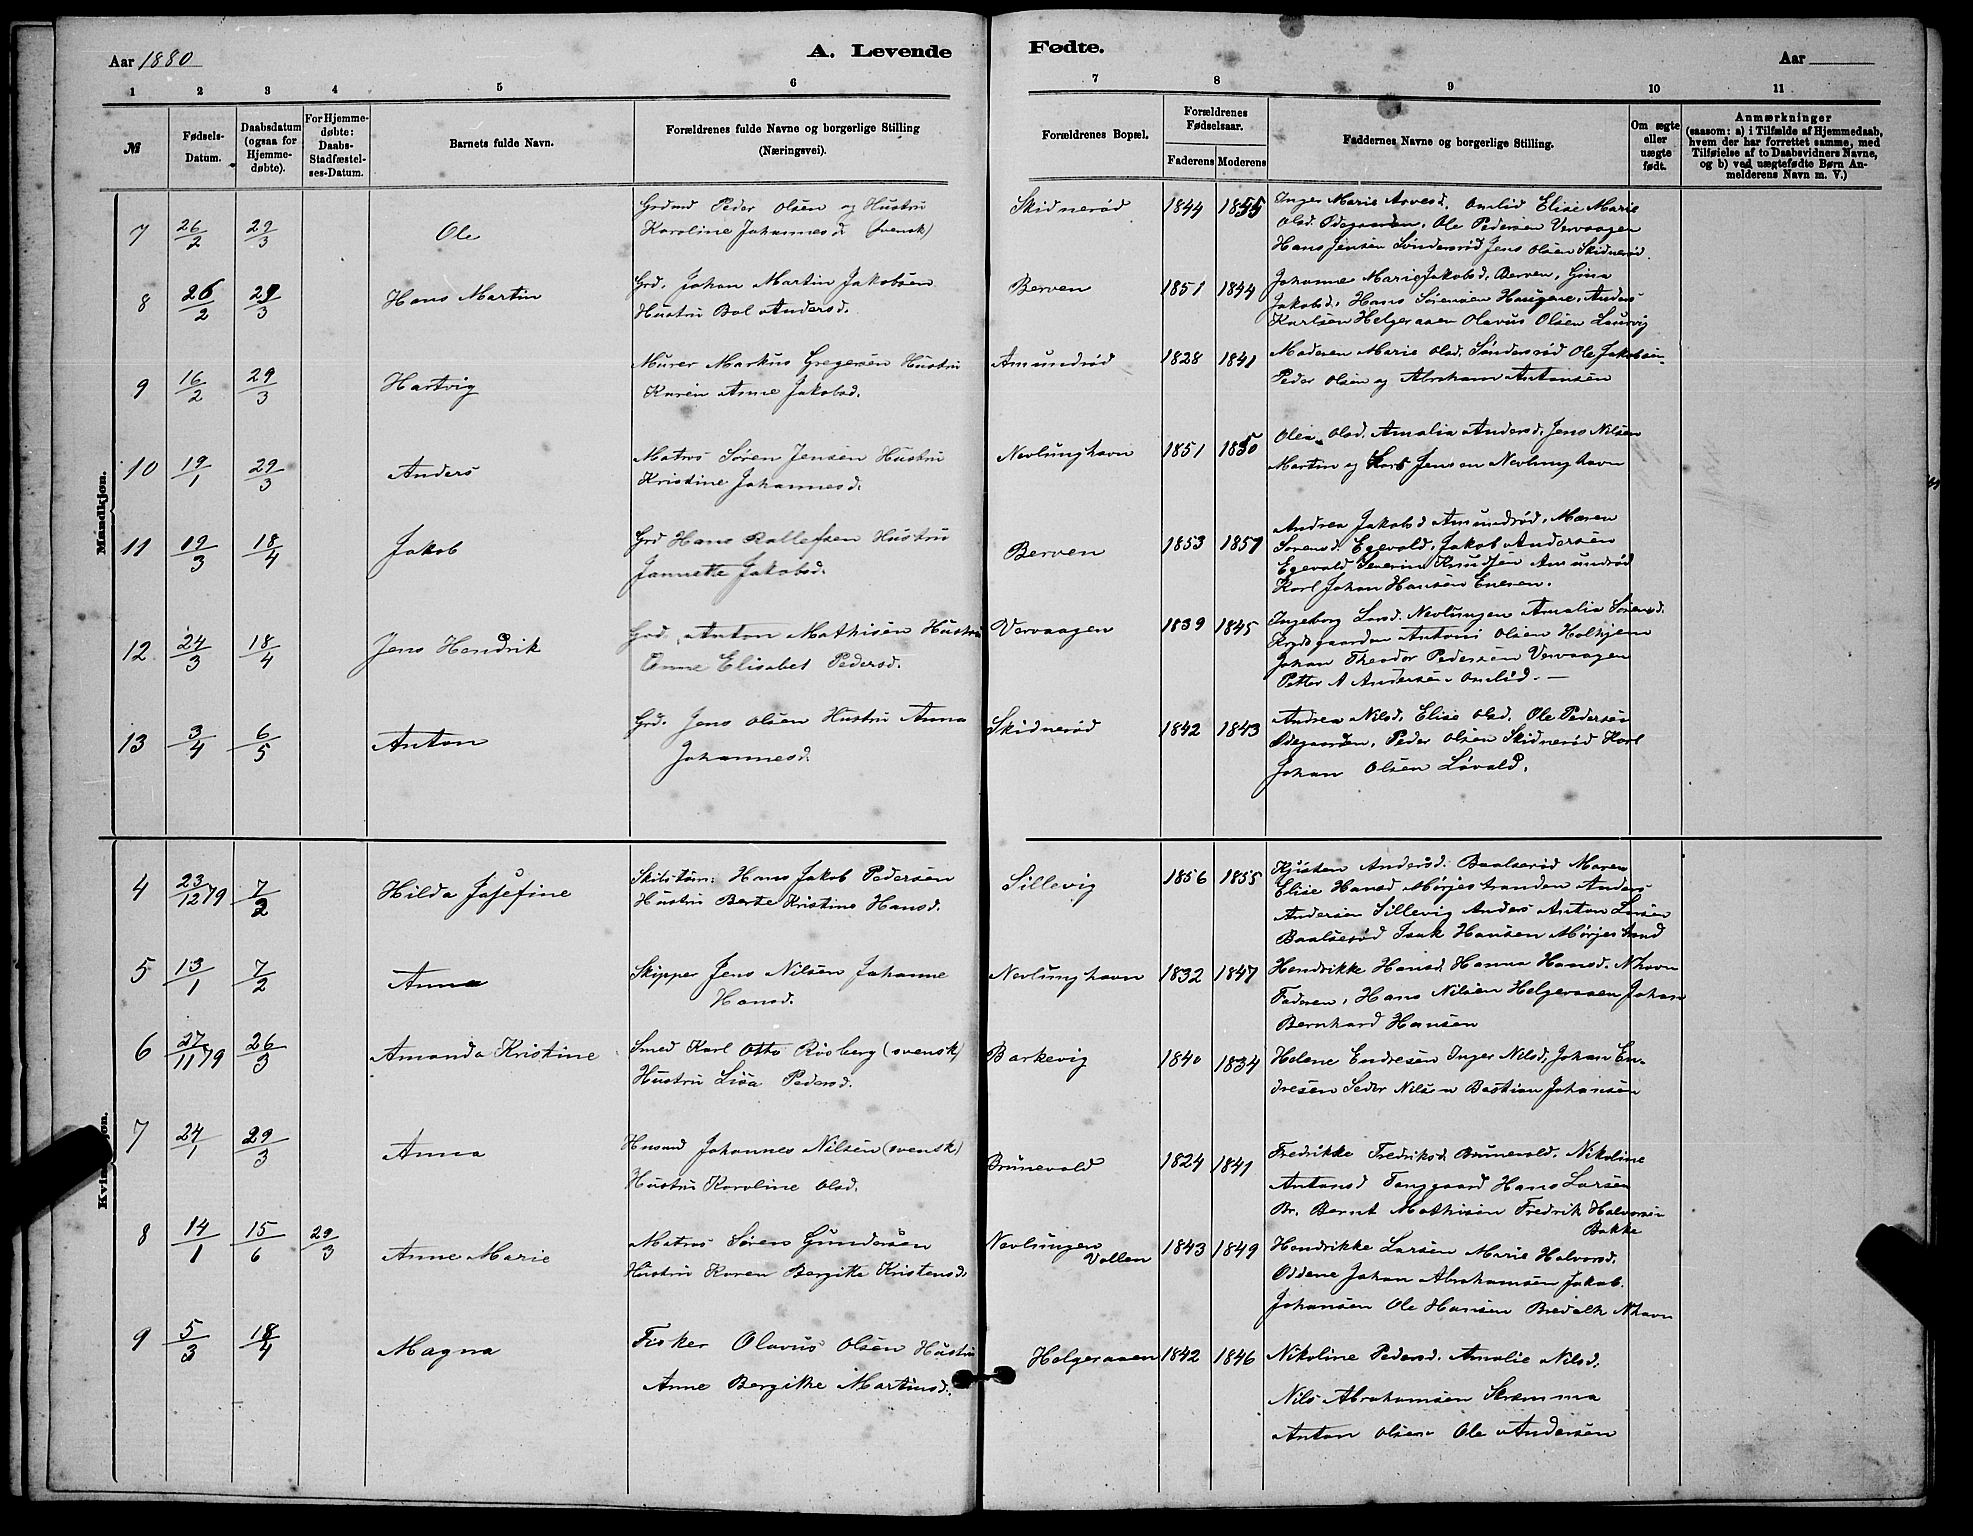 Aar 1880
A. Levende
Fødte.
Aar
1 2 3 4 5 6 7 8 9 10 11
№
Fødsels-
Datum.
Daabsdatum
(ogsaa for
Hjemme-
døbte).
For Hjemme-
døbte:
Daabs-
Stadfæstel-
ses-Datum.
Barnets fulde Navn.
Forældrenes fulde Navne og borgerlige Stilling
(Næringsvei).
Forældrenes Bopæl.
Forældrenes
Fødselsaar.
Faderens Moderens
Faddernes Navne og borgerlige Stilling.
Om ægte
eller
uægte
født.
Anmærkninger
(saasom: a) i Tilfælde af Hjemmedaab,
hvem der har forrettet samme, med
Tilføielse af to Daabsvidners Navne,
og b) ved uægtefødte Børn An-
melderens Navn m. V.)
Mandkjøn.
7 26/2 29/3 Ole
Grdmd Peder Olsen og Hustru
Karoline Johannesd. (svensk)
Skidnerød 1844 1855
Inger Marie Arvesd. Omlid Elise Marie
Olsd. Ødegaarden, Ole Pedersen Vervaagen
Hans Jensen Søndersrød Jens Olsen Skidnerød.
8 26/2 29/3 Hans Martin
Grd. Johan Martin Jakobsen
Hustru Bol Andersd.
Berven 1851 1844
Johanne Marie Jakobsd. Berven, Gina
Jakobsd. Hans Sørensen Haugene, Anders
Karlsen Helgeraaen Olavus Olsen Laurvig
9 16/2 29/3 Hartvig
Murer Markus Gregersen Hustru
Karen Anne Jakobsd.
Amundrød 1828 1841
Moderen Marie Olsd. Søndersrød Ole Jakobsen
Peder Olsen og Abraham Antonsen
10 19/1 29/3 Anders
Matros Søren Jensen Hustru
Kristine Johannesd.
Nevlunghavn 1851 1850
Olea Olsd. Amalia Andersd. Jens Nilsen
Martin og Lars Jensen Nevlunghavn
11 19/3 18/4 Jakob
Grd Hans Rollefsen Hustru
Jannette Jakobsd.
Berven 1853 1857
Andrea Jakobsd Amundrød, Maren
Sørensd. Egevold, Jakob Andersen
Egevold Severin Knudsen Amundrød
Karl Johan Hansen Enesen.
12. 24/3 18/4 Jens Hendrik
Grd. Anton Mathisen Hustru
Anne Elisabet Pedersd.
Vervaagen 1839 1845
Ingeborg Larsd. Nevlungen Amalia Sørensd.
Antoni Olsen Holhjem
Johan Theodor Pedersen Vervaagen
Petter A Andersen Omlid. —
13 3/4 6/5 Anton
Grd. Jens Olsen Hustru Anna
Johannesd.
Skidnerød 1842 1843
Andrea Nilsd. Elise Olsd. Ole Pedersen
Ødegaarden, Peder Olsen Skidnerød Karl
Johan Olsen Løvald.
4 23/12 79 7/2 Hilda Josefine
Hans Jakob Pedersen
Hustru Berte Kristine Hansd.
Sillevig 1856 1855
Kjisten Andersd. Baalserød Maren
Elise Hansd Mørjestranden Anders
Andersen Sillevig Anders Anton Larsen
Baalserød Isak Hansen Mørjestrand
5 13/1 7/2 Anna
Skipper Jens Nilsen Johanne
Hansd.
Nevlunghavn 1832 1847
Hendrikke Hansd. Hanna Hansd. Nhavn
Faderen, Hans Nilsen Helgeraaen Johan
Bernhard Hansen
6 27/11 79 26/3 Amanda Kristine
Smed Karl Otto Rosberg (svensk)
Hustru Lisa Pedersd.
Barkevig 1840 1834
Helene Endresen Inger Nilsd, Johan En-
dresen Peder Nilsen Bastian Johansen
7 24/1 29/3 Anna
Husmd Johannes Nilsen (svensk)
Hustru Karoline Olsd.
Brunevald 1824 1841
Fredrikke Fredriksd. Brunevald. Nikoline
Antonsd Fanggaard Hans Larsen
Br. Bernt Mathisen Fredrik Halvorsen
Bakke
8 14/1 15/6 29/3 Anne Marie
Matros Søren Gundersen
Hustru Karen Bergitte Kristensd.
Nevlungen
Vollen 1843 1849
Hendrikke Larsen Marie Halvorsd.
Oddene Johan Abrahamsen Jakob
Johansen Ole Hansen Bredalk Nhavn
9 5/3 18/4 Magna
Fisker Olavus Olsen Hustru
Anne Bergikke Martinsd.
Helgeraaen 1842 1846
Nikoline Pedersd. Amalie Nilsd.
Nils Abrahamsen Skramma
Anton Olsen Ole Andersen